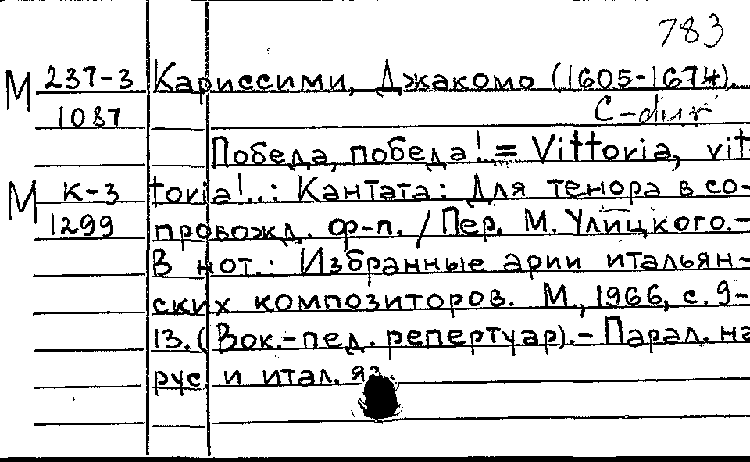 783
М 237-3 Кариссими, Джакомо (1605-1674).
1087 C-dur
Победа, победа! = Vittoria, vit-
М К-3 toria!..: Кантата: Для тенора в со-
1299 провожд. ф-п. / Пер. М. Улицкого.-
В нот.: Избранные арии итальян-
ских композиторов. М., 1966, с. 9-
13. (Вок.-пед. репертуар).- Парал. на
рус и итал. яз